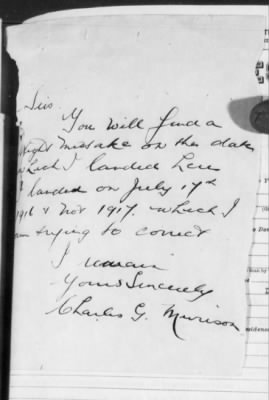 Sirs.
You will find a
slight mistake on the date
which I landed here
I landed on July 17th
1916 & not 1917. which I
am trying to correct
I remain
Yours Sincerely
Charles G. Murison